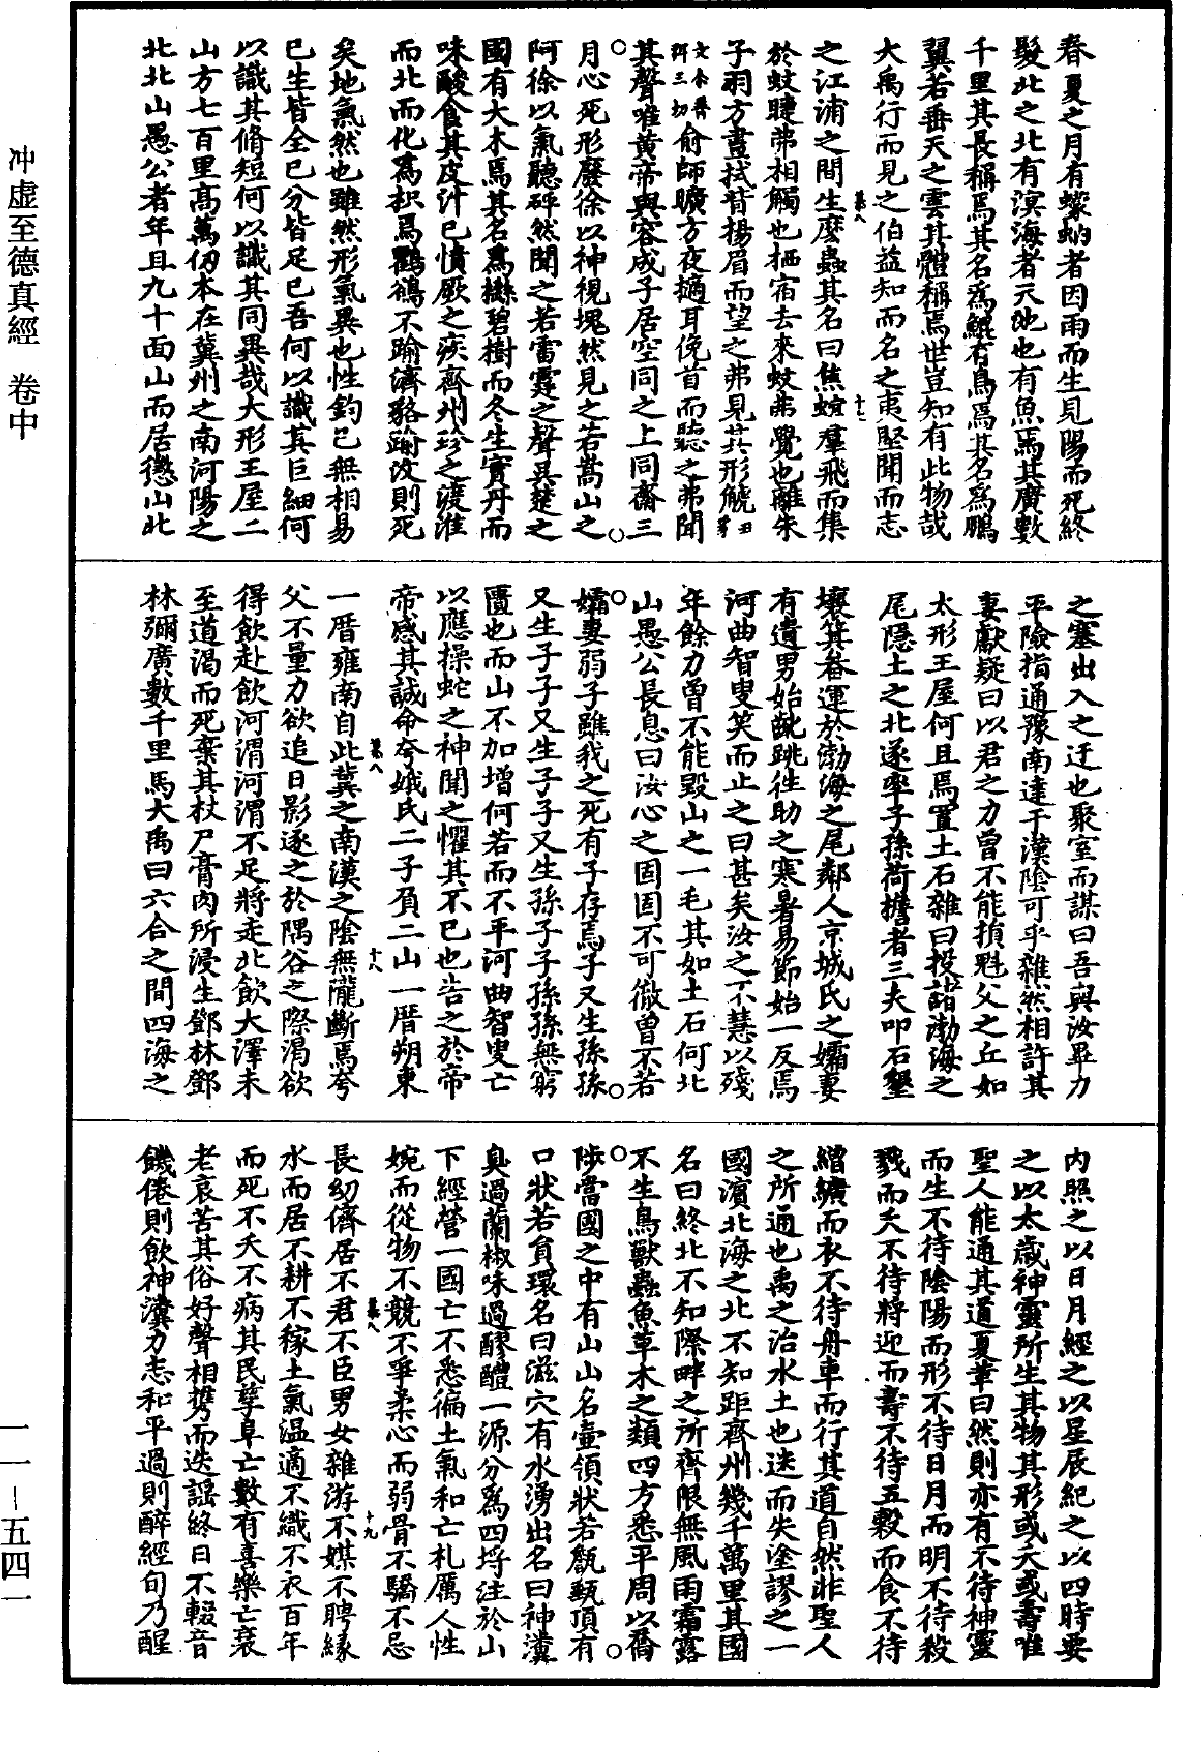 春夏之月有蠓蚋者因雨而生見陽而死終
髮北之北有溟海者天池也有魚焉其廣數
千里其長稱焉其名爲鯤有鳥焉其名爲鵬
翼若垂天之雲其體稱焉世豈知有此物哉
大禹行而見之伯益知而名之夷堅聞而志
之江浦之間生麼蟲其名曰焦螟羣飛而集
於蚊睫弗相觸也栖宿去來蚊弗覺也離朱
子羽方晝拭眥揚眉而望之弗見其形䚦
俞師曠方夜擿耳俛首而聽之弗聞
其聲唯黄帝與容成子居空同之上同齋三
月心死形廢徐以神視塊然見之若嵩山之
阿徐以氣聽砰然聞之若雷霆之聲吳楚之
國有大木焉其名爲櫾碧樹而冬生實丹而
味酸食其皮汁已憤厥之疾齊州珍之渡淮
而北而化爲枳焉鸜鵒不踰濟貉踰汶則死
矣地氣然也雖然形氣異也性鈞已無相易
已生皆全已分皆足已吾何以識其巨細何
以識其脩短何以識其同異哉大形王屋二
山方七百里高萬仞本在冀州之南河陽之
北北山愚公者年且九十面山而居懲山北
之塞出入之迂也聚室而謀曰吾與汝畢力
平險指通豫南達于漢陰可乎雜然相許其
妻獻疑曰以君之力曾不能損魁父之丘如
太形王屋何且焉置土石雜曰投諸渤海之
尾隱土之北遂率子孫荷擔者三夫叩石墾
壤箕畚運於渤海之尾鄰人京城氏之孀妻
有遺男始齔跳往助之寒暑易節始一反焉
河曲智叟笑而止之曰甚矣汝之不慧以殘
年餘力曾不能毀山之一毛其如土石何北
山愚公長息曰汝心之固固不可徹曾不若
孀妻弱子雖我之死有子存焉子又生孫孫
又生子子又生子子又生孫子子孫孫無窮
匱也而山不加增何若而不平河曲智叟亡
以應操蛇之神聞之懼其不已也告之於帝
帝感其誠命夸娥氏二子負二山一厝朔東
一厝雍南自此冀之南漢之陰無隴斷焉夸
父不量力欲追日影逐之於隅谷之際渴欲
得飲赴飲河渭河渭不足將走北飲大澤未
至道渴而死棄其杖尸膏肉所浸生鄧林鄧
林彌廣數千里焉大禹曰六合之間四海之
内照之以日月經之以星辰紀之以四時要
之以太歲神靈所生其物其形或夭或壽唯
聖人能通其道夏革曰然則亦有不待神靈
而生不待陰陽而形不待日月而明不待殺
戮而夭不待將迎而壽不待五穀而食不待
繒纊而衣不待舟車而行其道自然非聖人
之所通也禹之治水土也迷而失塗謬之一
國濱北海之北不知距齊州幾千萬里其國
名曰終北不知際畔之所齊限無風雨霜露
不生鳥獸蟲魚草木之類四方悉平周以喬
陟當國之中有山山名壺領狀若甔甀頂有
口狀若員環名曰滋穴有水湧出名曰神瀵
臭過蘭椒味過醪醴一源分爲四埒注於山
下經營一國亡不悉徧土氣和亡札厲人性
婉而從物不競不爭柔心而弱骨不驕不忌
長幼儕居不君不臣男女雜游不媒不聘緣
水而居不耕不稼土氣温適不織不衣百年
而死不夭不病其民孳阜亡數有喜樂亡衰
老哀苦其俗好聲相攜而迭謡終日不輟音
饑倦則飲神瀵力志和平過則醉經旬乃醒
冲虛至德真經　卷中
一一－五四一